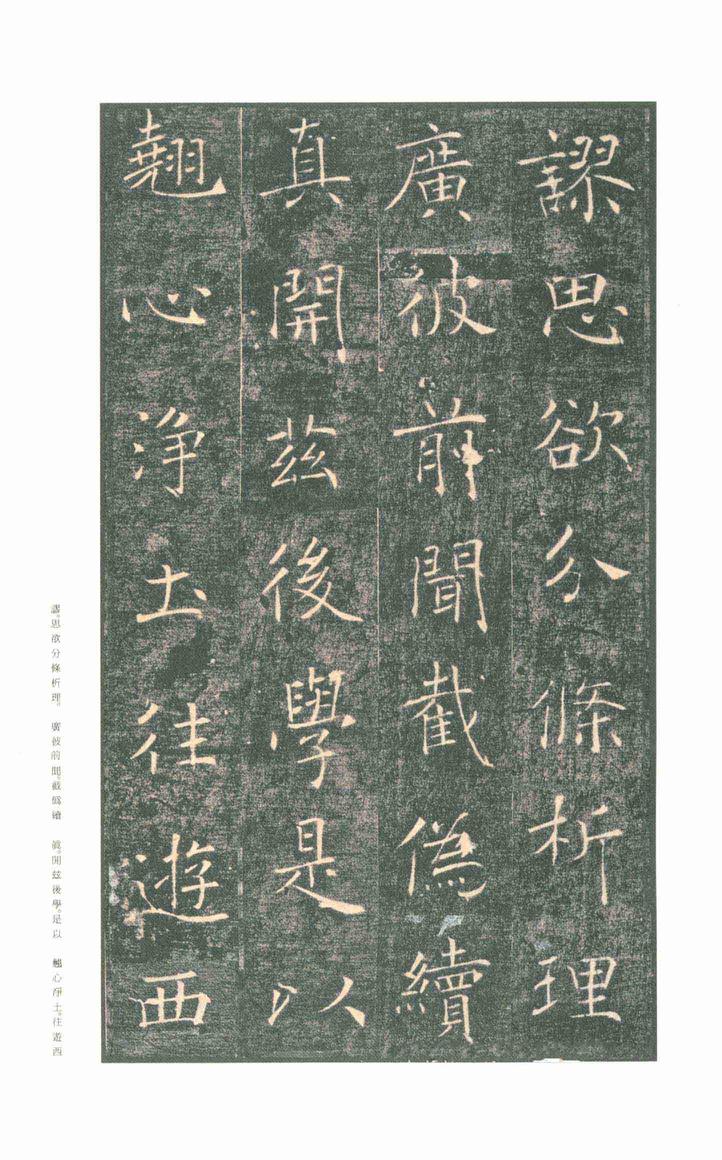 謬思欲分條析理
廣彼前聞截偽續
真開茲後學是以
翹心淨土往遊西
謬。思欲分條析理。　廣彼前聞。截僞續　眞。開茲後學。是以　翹心淨土。往遊西